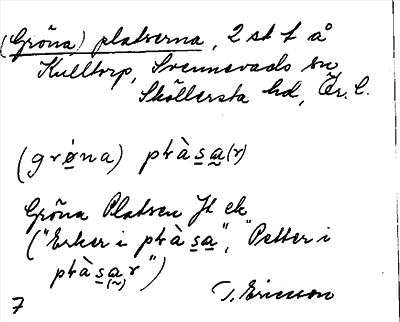 (Gröna) platserna, 2 st t å
Kulltorp, Svennevads sn
Sköllersta hd, Ör. l.
(grø̱na) plàs̱a̱(r)
Gröna Platsen Jt ek
("Erker i plàs̱a̱", "Petter i
plàs̱a̱(~)r")
T. Ericsson
7